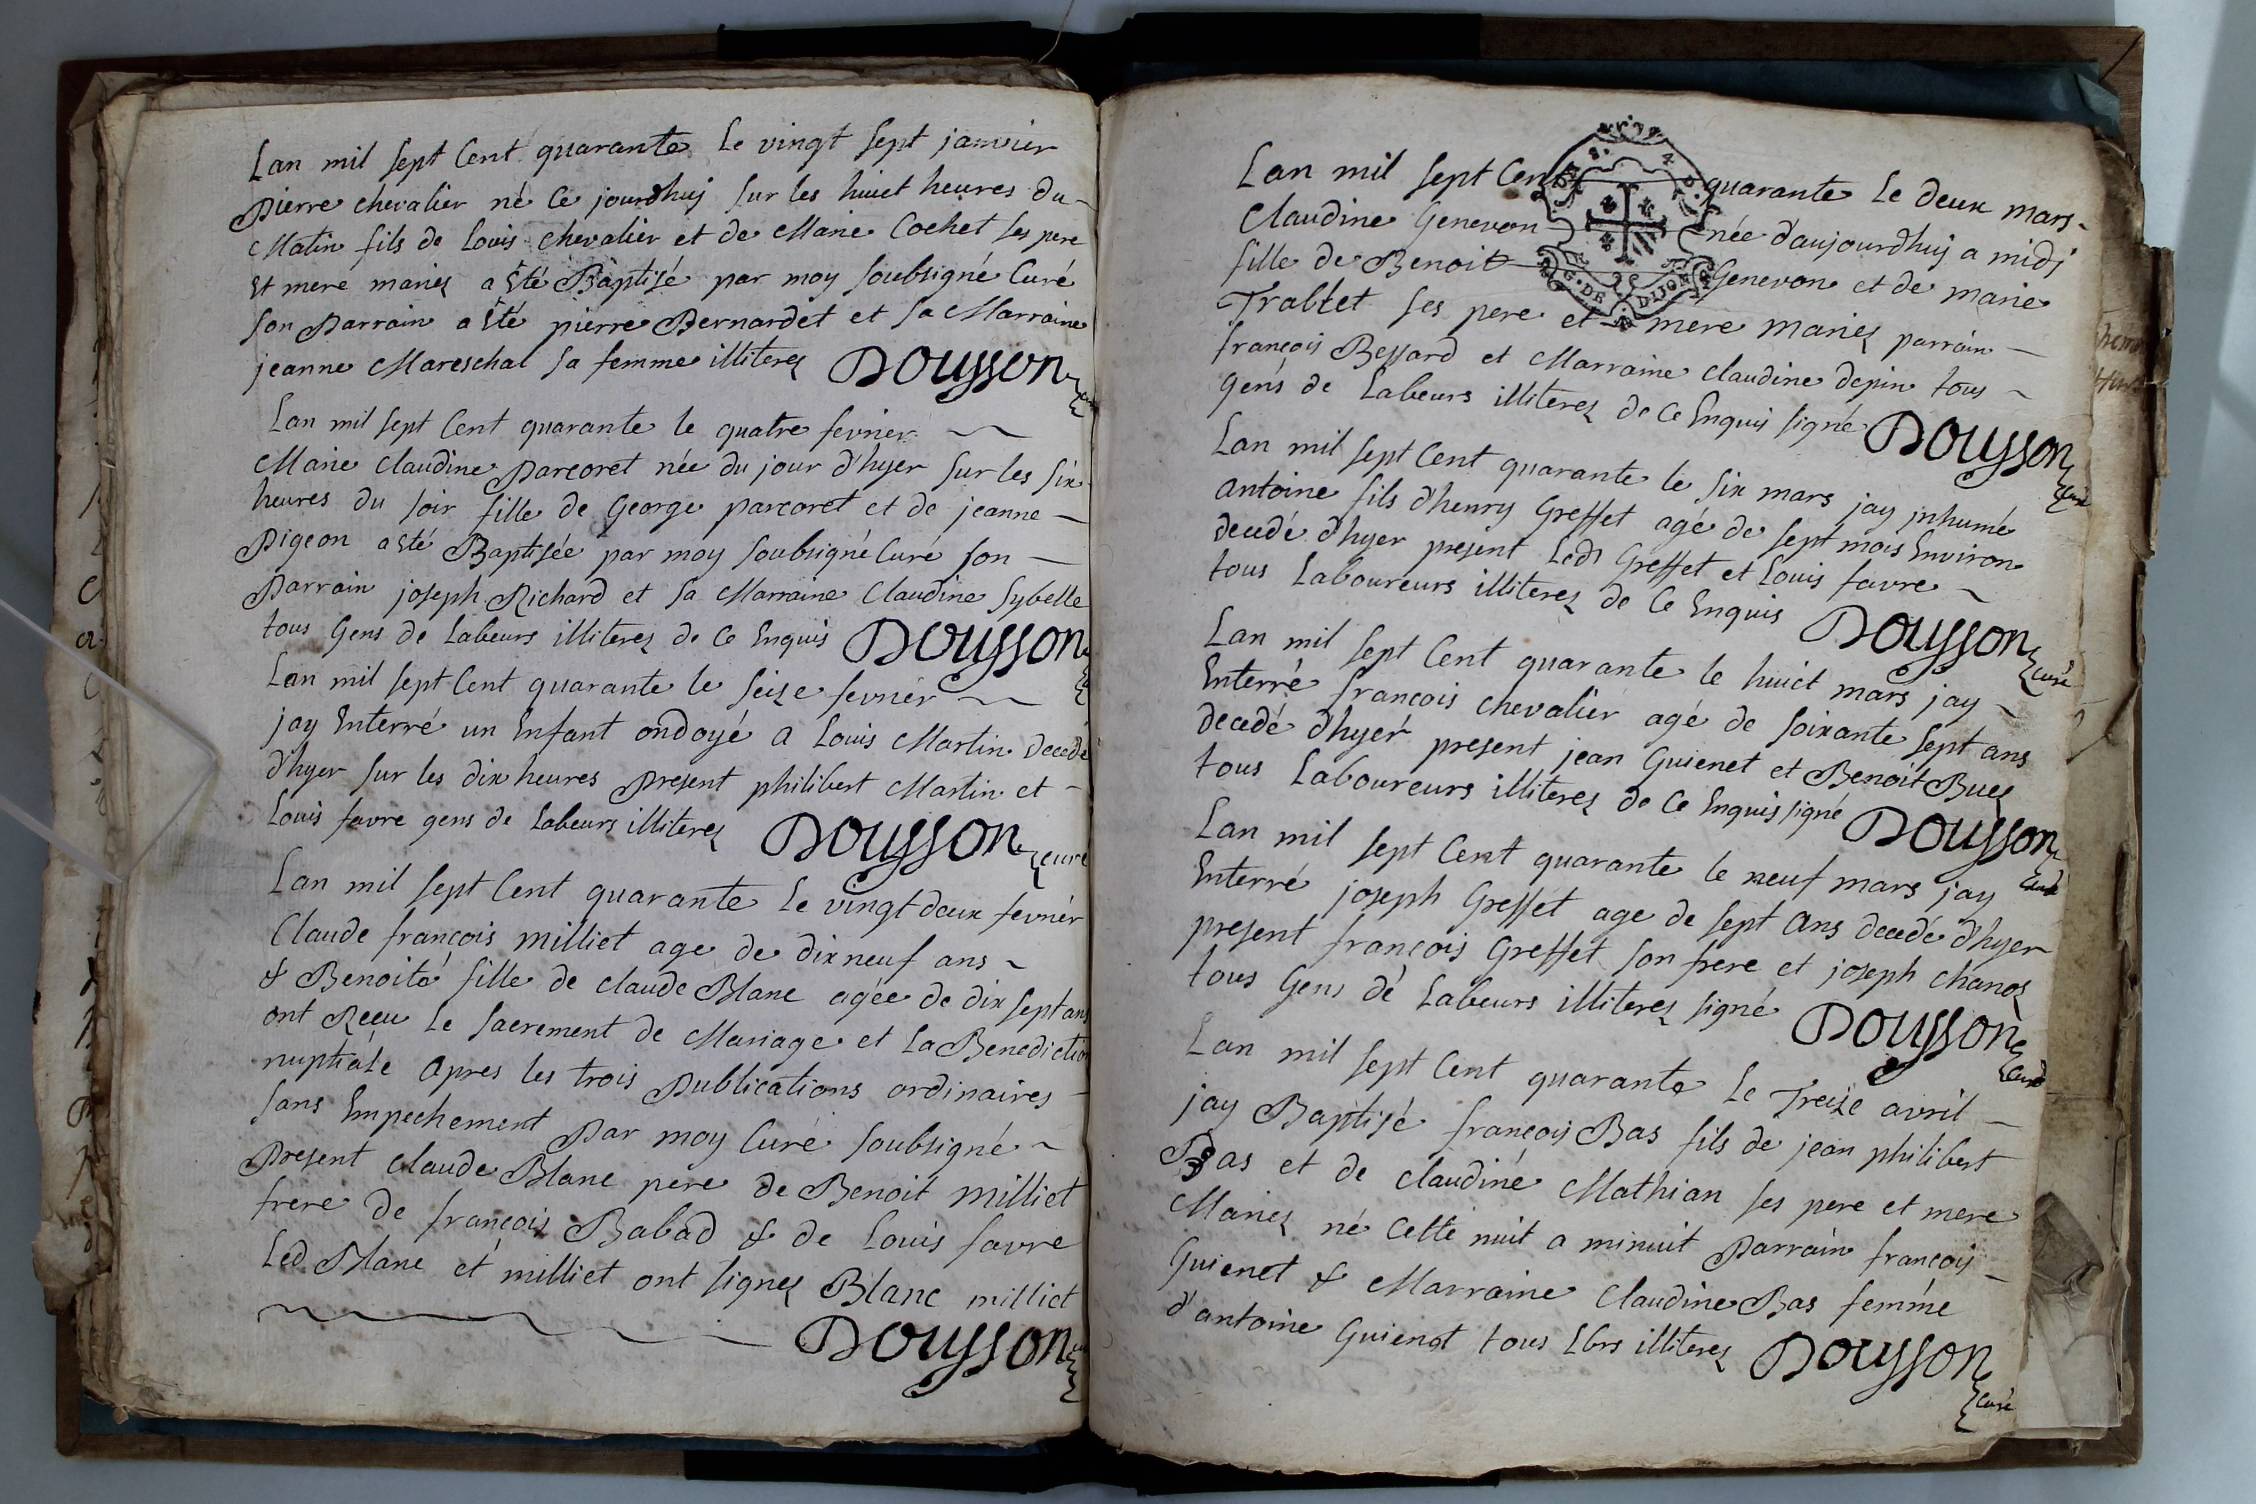 Lan mil sept Cent quarante Le vingt sept janvier
Pierre chevalier né Ce jourdhuj sur les huict heures du
Matin fils de Louis chevalier et de Marie Cochet ses pere
Et mere mariez a Eté Baptisé par moy soubsigné Curé
son Parrain a Eté pierre Bernardet et sa Marraine
jeanne Mareschal sa femme illiterez Douysson
Lan mil sept Cent quarante le quatre fevrier
Marie Claudine Parcoret née du jour d'hyer sur les six
heures du soir fille de George parcoret et de jeanne
Pigeon a Eté Baptisée par moy soubsigné Curé son
Parrain joseph Richard et sa Marraine Claudine Sybelle
tous Gens de Labeurs illiterez de Ce Enquis Douysson
Lan mil sept Cent quarante le seize fevrier
jay Enterré un Enfant ondoyé a Louis Martin decedé
d'hyer sur les dix heures Present philibert Martin et
Louis favre gens de Labeurs illiterez Douysson curé
Lan mil sept Cent quarante Le vingt deux fevrier
Claude françois milliet age de dix neuf ans
& Benoite fille de claude Blanc agée de dix sept ans
ont Receu Le sacrement de Mariage et La Benediction
nuptiale apres les trois Publications ordinaires
sans Empechement Par moy Curé soubsigné
Present claude Blanc pere de Benoit milliet
frere de françois Babad & de Louis favre
Led Blanc et milliet ont signez Blanc milliet
Douysson
Lan mil sept Cent quarante Le deux mars
Claudine Genevon née d'aujourdhuj a midj
fille de Benoit Genevon et de marie
Trablet ses pere et mere mariez parrain
françois Bessard et Marraine claudine depin tous
gens de Labeurs illiterez de Ce Enquis signé Douysson
curé
Lan mil sept Cent quarante le six mars jay jnhumé
antoine fils d'henry Greffet agé de sept mois Environ
decedé d'hyer present Ledt Greffet et Louis favre
tous Laboureurs illiterez de Ce Enquis Douysson
curé
Lan mil sept Cent quarante le huict mars jay
Enterré françois chevalier agé de soixante sept ans
decedé d'hyer present jean Guienet et Benoit Buez
tous Laboureurs illiterez de Ce Enquis signé Douysson
curé
Lan mil sept Cent quarante le neuf mars jay
Enterré joseph Greffet age de sept ans decedé d'hyer
present françois Greffet son frere et joseph chanoz
tous Gens de Labeurs illiterez signé Douysson
curé
Lan mil sept Cent quarante Le Treize avril
jay Baptisé françois Bas fils de jean philibert
Bas et de claudine Mathian ses pere et mere
Mariez né Cette nuit a minuit Parrain françois
Guienet & Marraine Claudine Bas femme
d'antoine Guienet tous Lbrs illiterez Douysson
curé
G. DE DIJON